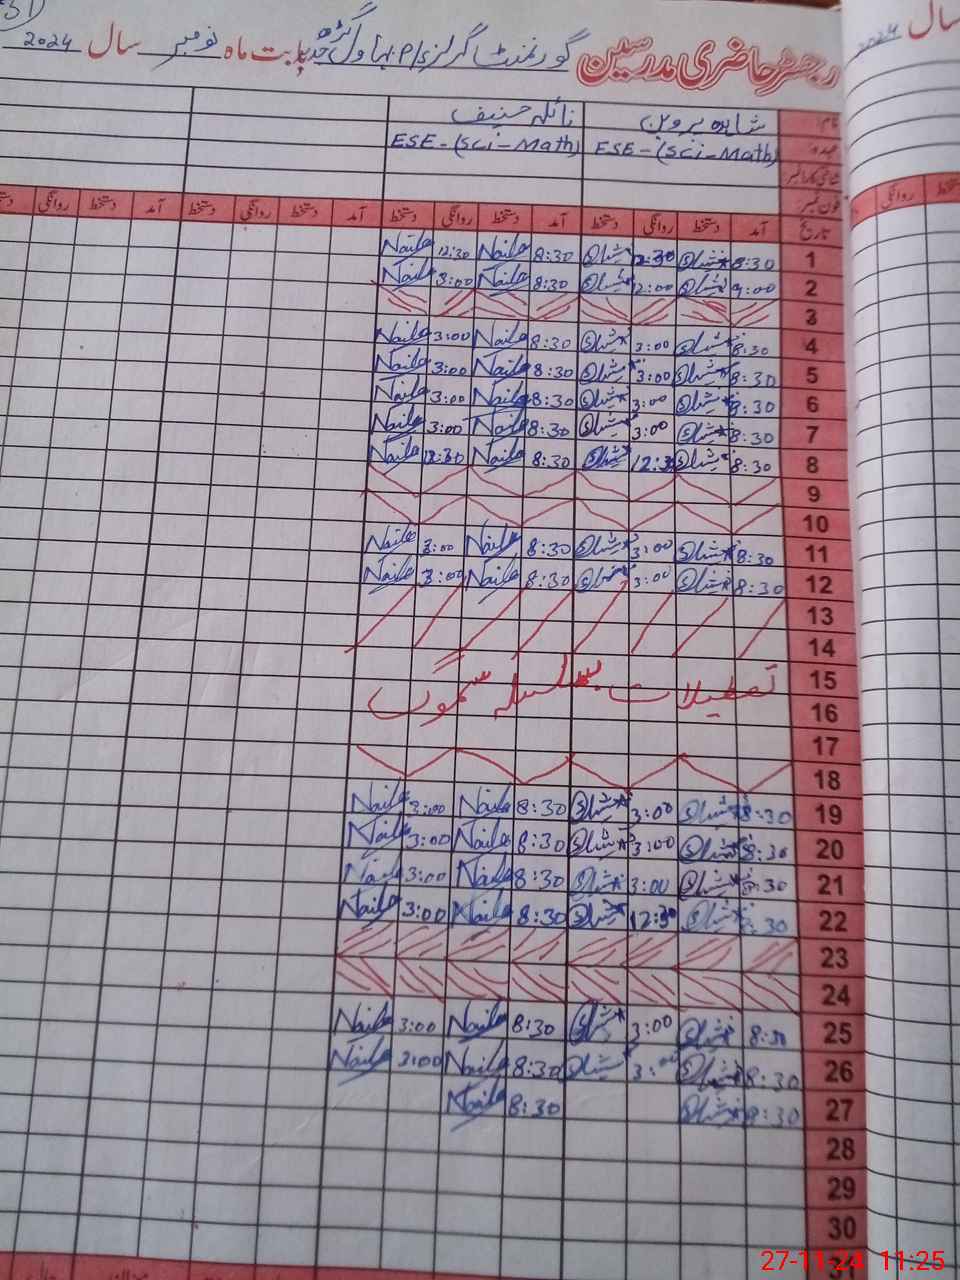 رجسٹر حاضری مدرسین گورنمنٹ گرلز P/S بابت ماہ نومبر سال 2024
سال 2024
نام شاہدہ پروین نائلہ حنیف
عہدہ ESE-(Sci-Math) ESE-(Sci-Math)
شناختی کارڈ نمبر
فون نمبر
تاریخ آمد دستخط روانگی دستخط آمد دستخط روانگی دستخط آمد دستخط روانگی دستخط آمد دستخط روانگی دستخط
1 8:30 12:30 8:30 Naila 12:30 Naila
2 9:00 12:00 8:30 Naila 3:00 Naila
3
4 8:30 3:00 8:30 Naila 3:00 Naila
5 8:30 3:00 8:30 Naila 3:00 Naila
6 8:30 3:00 8:30 Naila 3:00 Naila
7 8:30 3:00 8:30 Naila 3:00 Naila
8 8:30 12:30 8:30 Naila 12:30 Naila
9
10
11 8:30 3:00 8:30 Naila 3:00 Naila
12 8:30 3:00 8:30 Naila 3:00 Naila
13
14
15 تعطیلات بسلسلہ سموگ
16
17
18
19 8:30 3:00 8:30 Naila 3:00 Naila
20 8:30 3:00 8:30 Naila 3:00 Naila
21 8:30 3:00 8:30 Naila 3:00 Naila
22 8:30 12:30 8:30 Naila 3:00 Naila
23
24
25 8:30 3:00 8:30 Naila 3:00 Naila
26 8:30 3:00 8:30 Naila 3:00 Naila
27 8:30 8:30 Naila
28
29
30
27-11-24 11:25